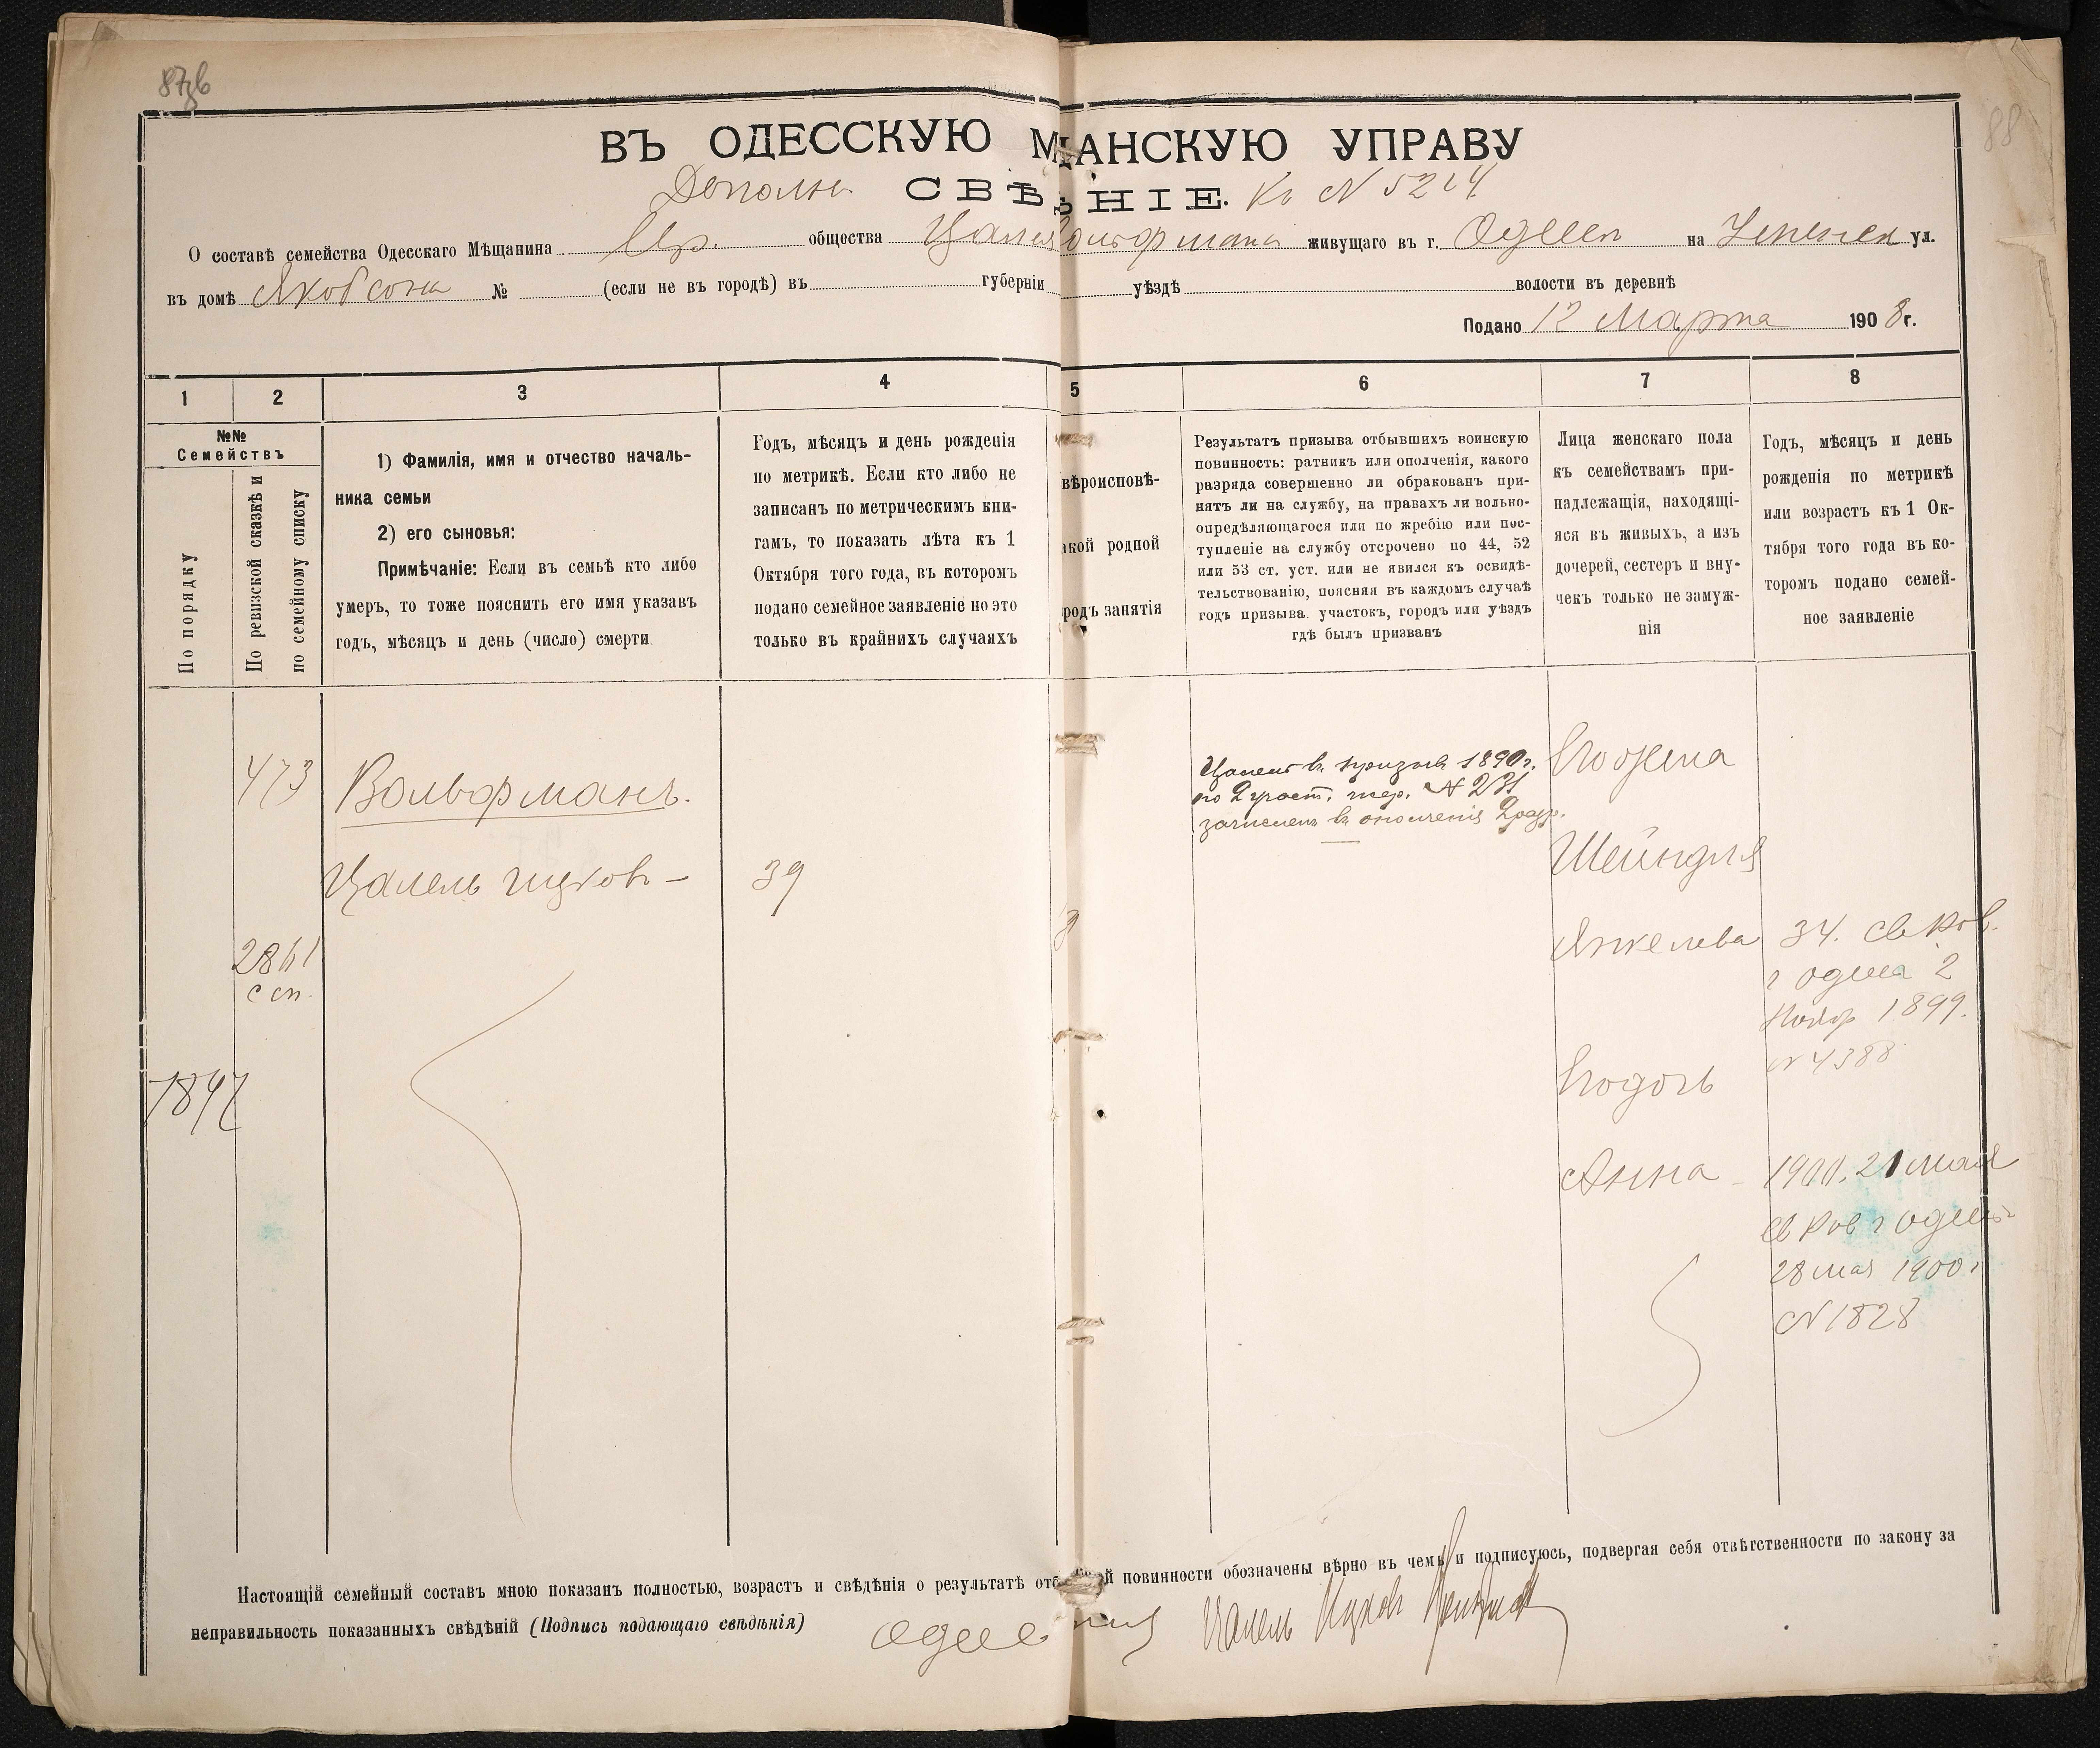 87
88
ВЪ ОДЕССКУЮ М ЩАНСКУЮ УПРАВУ
Дополн. СВѢ НІЕ. Къ N 5224
О составѣ семейства Одесскаго Мѣщанина Евр. общества Цалеля Вольфмана живущаго въ г. Одессѣ на Успенск ул.
въ домѣ Якобсона № (если не въ городѣ) въ губерніи уѣздѣ волости въ деревнѣ
Подано 12 Марта 1908 г.
1 2 3 4 5 6 7 8
№№
Семействъ
По порядку
По ревизской сказкѣ и
по семейному списку
1) Фамилія, имя и отчество началь-
ника семьи
2) его сыновья:
Примѣчаніе: Если въ семьѣ кто либо
умеръ, то тоже пояснить его имя указавъ
годъ, мѣсяцъ и день (число) смерти.
Годъ, мѣсяцъ и день рожденія
по метрикѣ. Если кто либо не
записанъ по метрическимъ кни-
гамъ, то показать лѣта къ 1
Октября того года, въ которомъ
подано семейное заявленіе но это
только въ крайнихъ случаяхъ
вѣроисповѣ-
акой родной
родъ занятія
Результатъ призыва отбывшихъ воинскую
повинность: ратникъ или ополченія, какого
разряда совершенно ли обракованъ при-
нятъ ли на службу, на правахъ ли вольно-
опредѣляющагося или по жребію или пос-
тупленіе на службу отсрочено по 44, 52
или 53 ст. уст. или не явился къ освидѣ-
тельствованію, поясняя въ каждомъ случаѣ
годъ призыва участокъ, городъ или уѣздъ
гдѣ былъ призванъ
Лица женскаго пола
къ семействамъ при-
надлежащія, находящі-
яся въ живыхъ, а изъ
дочерей, сестеръ и вну-
чекъ только не замуж-
нія
Годъ, мѣсяцъ и день
рожденія по метрикѣ
или возрастъ къ 1 Ок-
тября того года въ ко-
торомъ подано семей-
ное заявленіе
473
Вольфманъ.
Цалель Ицковъ —
39
2861
с сп.
1847
Цалель въ призывъ 1890 г.
по 2 участ. жер. N 231
зачисленъ въ ополченія 2 разр.
Его жена
Шейндля
Янкелева
34. св Рав.
г Одесса 2
Нояб 1899.
N 4388
Его дочь
Анна
1900. 21 мая
св Рав г Одессы
28 мая 1900 г
N 1828
Настоящій семейный составъ мною показанъ полностью, возрастъ и свѣдѣнія о результатѣ отб ой повинности обозначены вѣрно въ чемъ и подписуюсь, подвергая себя отвѣтственности по закону за
неправильность показанныхъ свѣдѣній (Подпись подающаго свѣдѣнія) Цалель Ицковъ